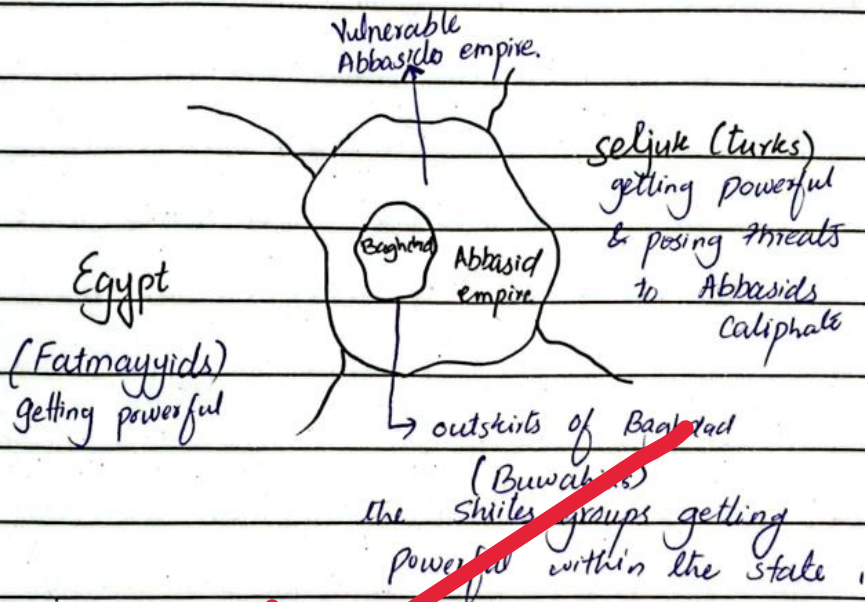 Vulnerable
Abbasids empire.
Seljuk (turks)
getting powerful
& posing threats
to Abbasids
Caliphate
Baghdad
Abbasid
empire
Egypt
(Fatmayyids)
getting powerful
outskirts of Baghdad
(Buwahids)
the Shiites groups getting
powerful within the state.